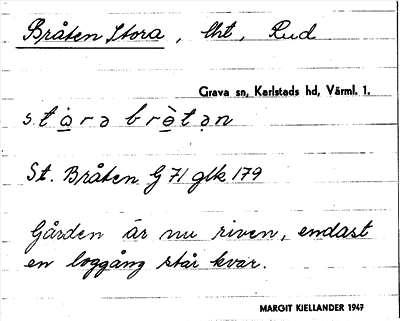 Bråten Stora, lht, Rud
Grava sn, Karlstads hd, Värml. l.
s. tȧ̱rə brė̱tən
St. Bråten G 71 glk 179
Gården är nu riven, endast
en loggång står kvar.
MARGIT KJELLANDER 1947